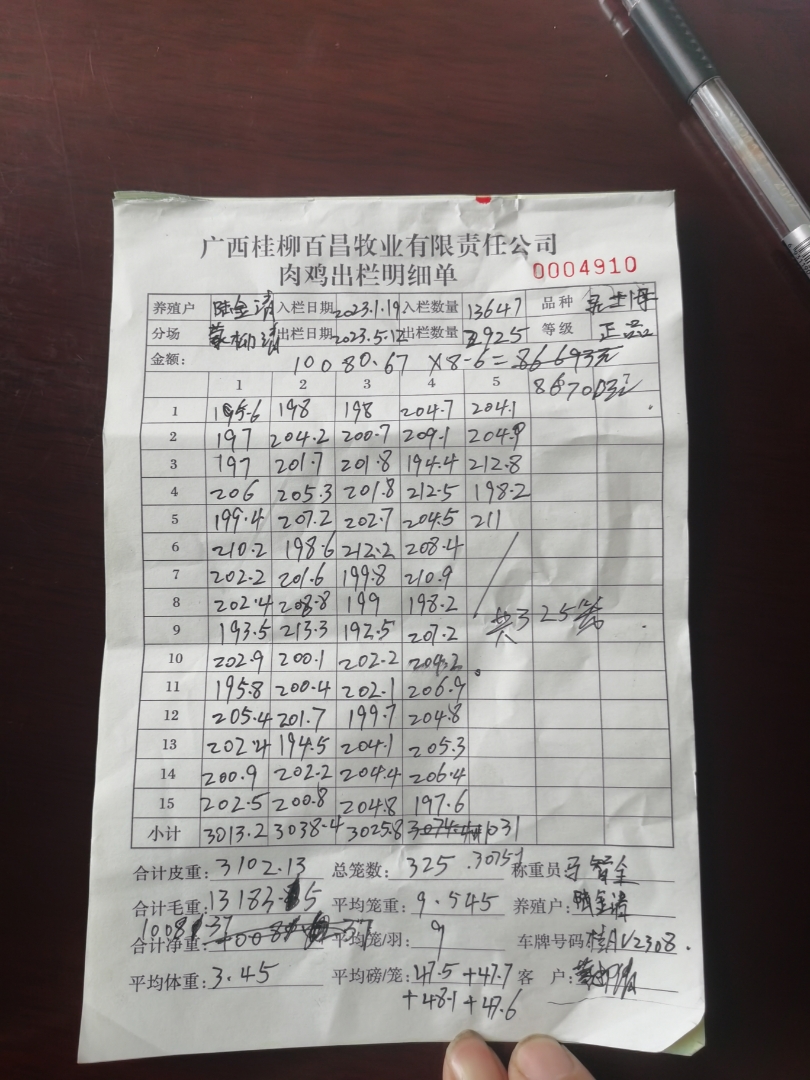 广西桂柳百昌牧业有限责任公司
肉鸡出栏明细单 0004910
养殖户 陆金清 入栏日期 2023.1.19 入栏数量 13647 品种
分场 出栏日期 2023.5.12 出栏数量 2925 等级 正品
金额: 10080.67 ×8.6= 86693元
1 2 3 4 5
1 195.6 198 198 204.7 204.1
2 197 204.2 200.7 209.1 204.9
3 197 201.7 201.8 194.4 212.8
4 206 205.3 201.8 212.5 198.2
5 199.4 207.2 202.7 204.5 211
6 210.2 198.6 212.2 208.4
7 202.2 201.6 199.8 210.9
8 202.4 208.8 199 198.2
9 193.5 213.3 192.5 207.2 共325笼
10 202.9 200.1 202.2 204.2
11 195.8 200.4 202.1 206.9
12 205.4 201.7 199.7 204.8
13 202.4 194.5 204.1 205.3
14 200.9 202.2 204.4 206.4
15 202.5 200.8 204.8 197.6
小计 3013.2 3038.4 3025.8 1031
合计皮重: 3102.13 总笼数: 325 称重员
合计毛重: 平均笼重: 9.545 养殖户: 陆金清
合计净重: 平均笼/羽: 9 车牌号码
平均体重: 3.45 平均磅/笼: 47.5 +47.7 客 户:
+48.1 +47.6